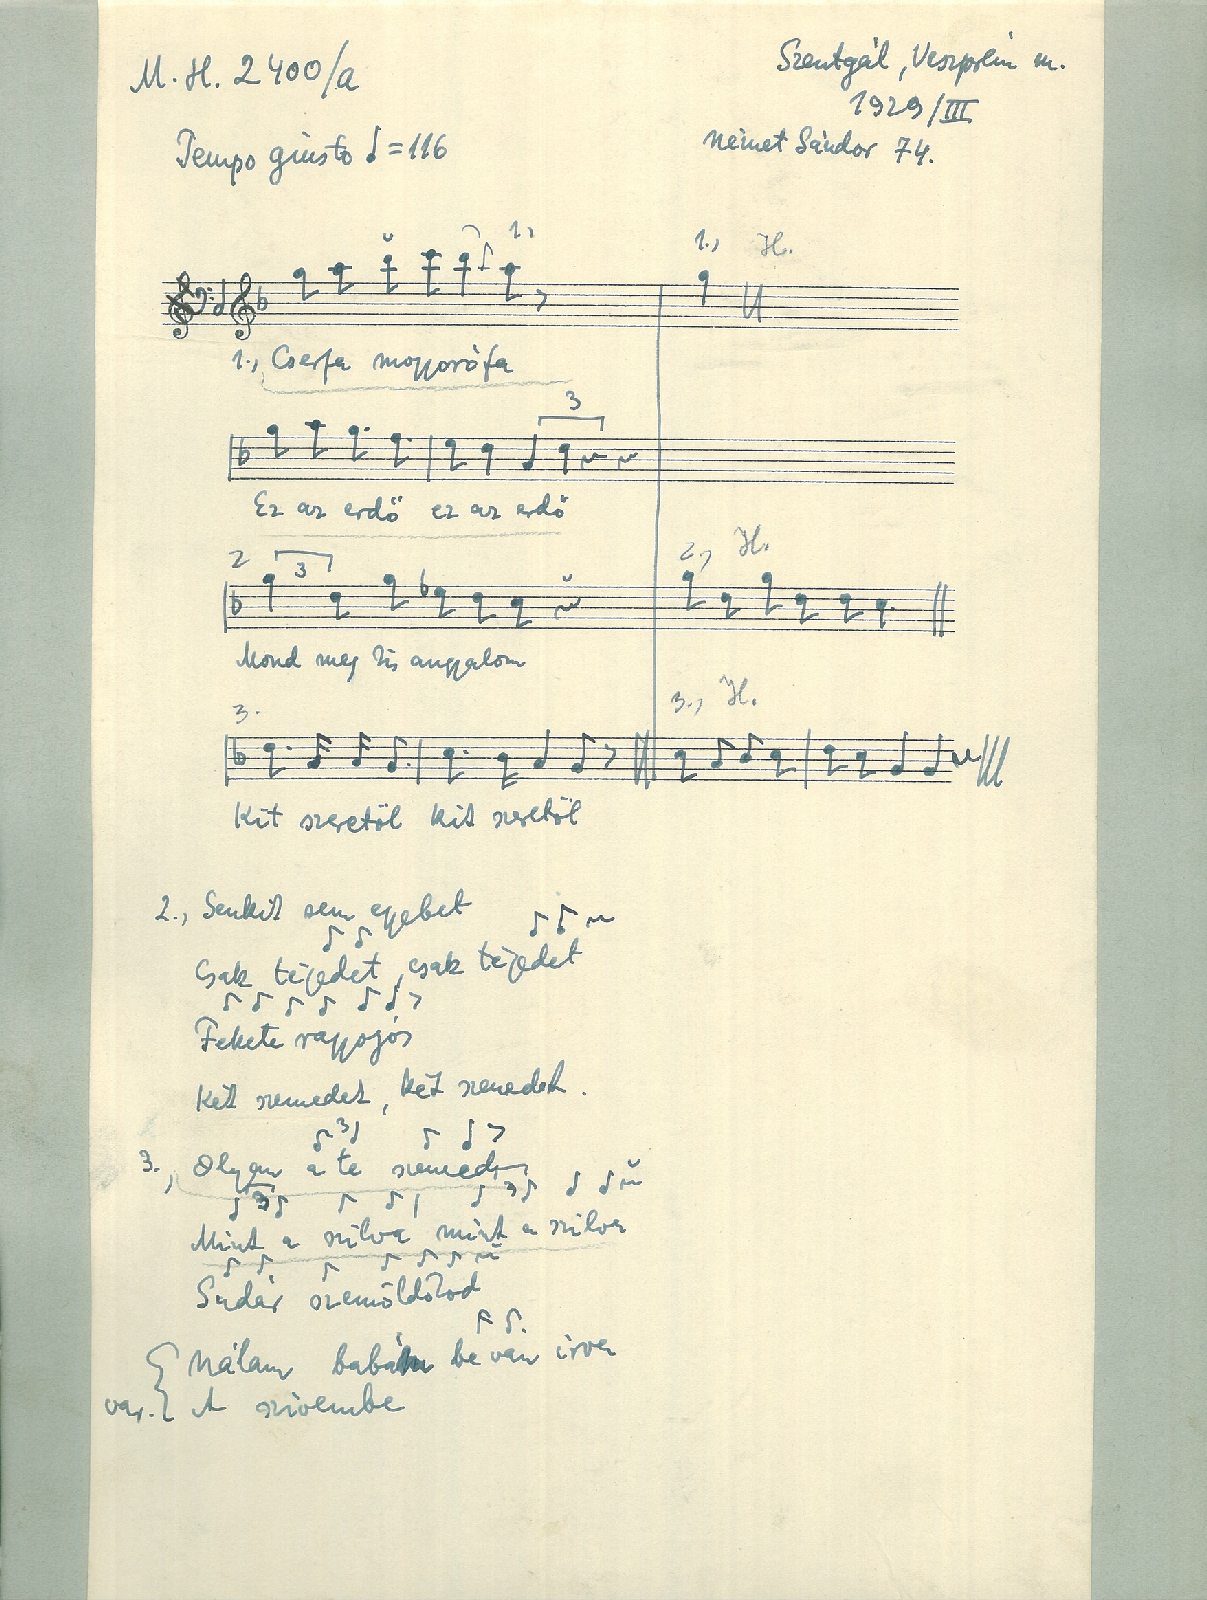 M. H. 2400/a
Szentgál, Veszprém m.
1929/III
Német Sándor 74.
Tempo giusto ♩=116
1., 1., H.
1., Cserfa mogyorófa
3
Ez az erdő ez az erdő
2 3 2., H.
Mond meg kis angyalom
3. 3., H.
Kit szeretöl kit szeretöl
2., Senkit sem egyebet
Csak tégedet, csak tégedet
Fekete ragyogós
Két szemedet, két szemedet.
3
3., Olyan a te szemed
3 3
Mint a szilva mint a szilva
Sudár szemöldököd
Nálam babám be van irva
var. A szivembe